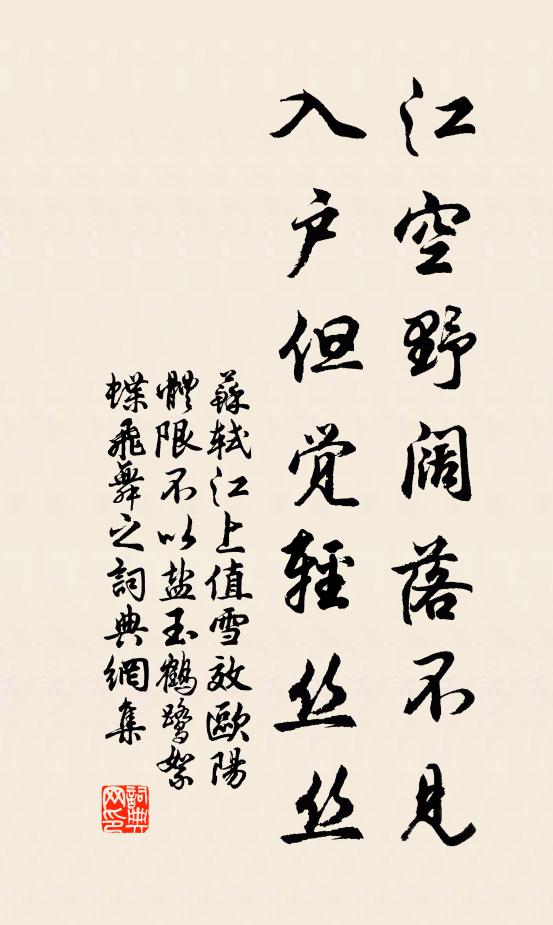 江空野阔落不见
入户但觉輕丝丝
蘇轼江上值雪效歐陽
體限不以盐玉鶴鹭絮
蝶飛舞之詞典網集
詞典
网印